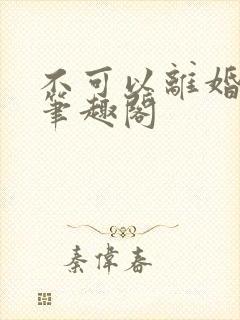 不可以離婚
筆趣閣
秦偉春